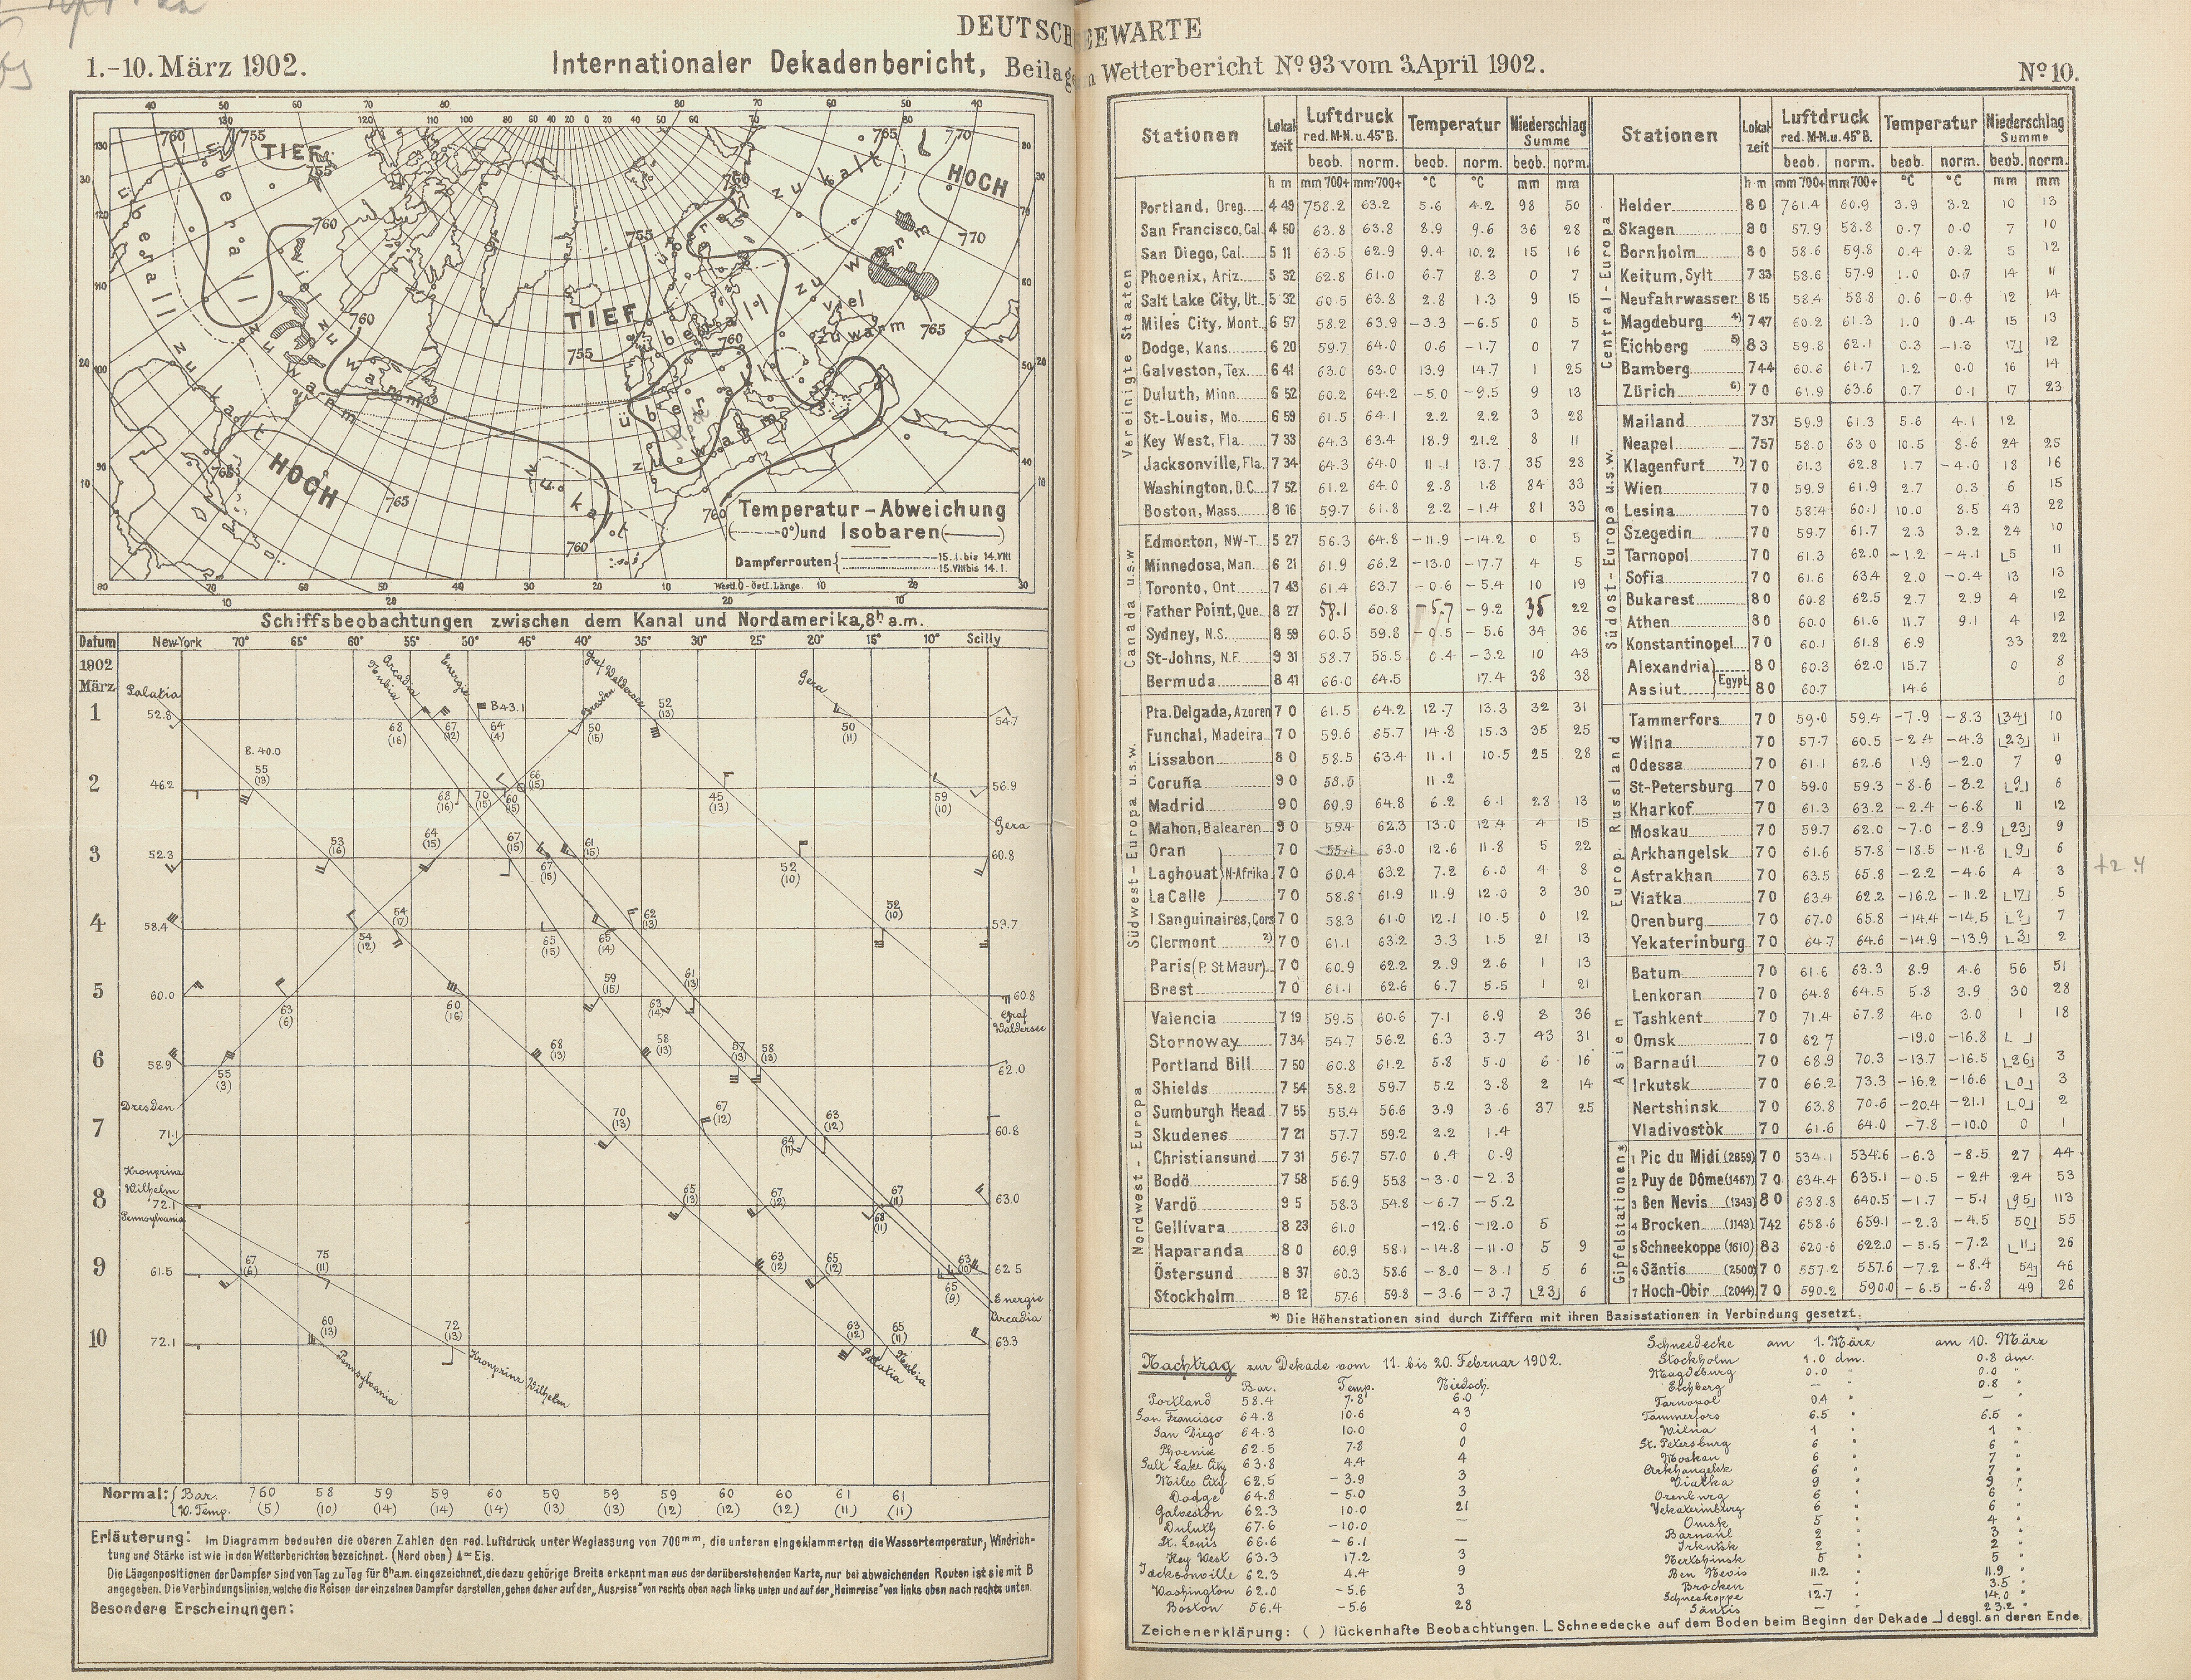 DEUTSCHE SEEWARTE
1.-10. März 1902.
Internationaler Dekadenbericht, Beilage Wetterbericht Nº 93 vom 3. April 1902.
Nº 10.
TIEF
HOCH
TIEF
HOCH
Temperatur-Abweichung
(-----0°) und Isobaren (——)
Dampferrouten { 15. I. bis 14. VIII
15. VIII bis 14. I.
Westl. 0 - östl. Länge.
Schiffsbeobachtungen zwischen dem Kanal und Nordamerika, 8h a.m.
Datum New-York 70° 65° 55° 50° 45° 40° 35° 30° 25° 20° 15° 10° Scilly
1902
März
1 52.8 54.7
2 46.2 56.9
3 52.3 60.8
4 58.4 59.7
5 60.0 60.8
6 58.9 62.0
7 71.1 60.8
8 72.1 63.0
9 61.5 62.5
10 72.1 63.3
Normal: { Bar. 760 58 59 59 60 59 59 59 60 60 61 61
W. Temp. (5) (10) (14) (14) (14) (13) (13) (12) (12) (12) (11) (11)
Erläuterung: Im Diagramm bedeuten die oberen Zahlen den red. Luftdruck unter Weglassung von 700 mm, die unteren eingeklammerten die Wassertemperatur, Windrich-
tung und Stärke ist wie in den Wetterberichten bezeichnet. (Nord oben) ▲= Eis.
Die Längenpositionen der Dampfer sind von Tag zu Tag für 8h a.m. eingezeichnet, die dazu gehörige Breite erkennt man aus der darüberstehenden Karte, nur bei abweichenden Routen ist sie mit B
angegeben. Die Verbindungslinien, welche die Reisen der einzelnen Dampfer darstellen, gehen daher auf der „Ausreise" von rechts oben nach links unten und auf der „Heimreise" von links oben nach rechts unten.
Besondere Erscheinungen:
Stationen Lokalzeit Luftdruck red. M-N. u. 45° B. Temperatur Niederschlag Summe
beob. norm. beob. norm. beob. norm.
h m mm 700+ mm 700+ °C °C mm mm
Vereinigte Staaten
Portland, Oreg. 4 49 758.2 63.2 5.6 4.2 98 50
San Francisco, Cal. 4 50 63.8 63.8 8.9 9.6 36 28
San Diego, Cal. 5 11 63.5 62.9 9.4 10.2 15 16
Phoenix, Ariz. 5 32 62.8 61.0 6.7 8.3 0 7
Salt Lake City, Ut. 5 32 60.5 63.8 2.8 1.3 9 15
Miles City, Mont. 6 57 58.2 63.9 -3.3 -6.5 0 5
Dodge, Kans. 6 20 59.7 64.0 0.6 -1.7 0 7
Galveston, Tex. 6 41 63.0 63.0 13.9 14.7 1 25
Duluth, Minn. 6 52 60.2 64.2 -5.0 -9.5 9 13
St-Louis, Mo. 6 59 61.5 64.1 2.2 2.2 3 28
Key West, Fla. 7 33 64.3 63.4 18.9 21.2 8 11
Jacksonville, Fla. 7 34 64.3 64.0 11.1 13.7 35 28
Washington, D.C. 7 52 61.2 64.0 2.8 1.8 84 33
Boston, Mass. 8 16 59.7 61.8 2.2 -1.4 81 33
Canada u.s.w.
Edmonton, NW-T. 5 27 56.3 64.8 -11.9 -14.2 0 5
Minnedosa, Man. 6 21 61.9 66.2 -13.0 -17.7 4 5
Toronto, Ont. 7 43 61.4 63.7 -0.6 -5.4 10 19
Father Point, Que. 8 27 58.1 60.8 -5.7 -9.2 35 22
Sydney, N.S. 8 59 60.5 59.8 -0.5 -5.6 34 36
St-Johns, N.F. 9 31 58.7 58.5 0.4 -3.2 10 43
Bermuda 8 41 66.0 64.5 17.4 38 38
Südwest-Europa u.s.w.
Pta. Delgada, Azoren 7 0 61.5 64.2 12.7 13.3 32 31
Funchal, Madeira 7 0 59.6 65.7 14.8 15.3 35 25
Lissabon 8 0 58.5 63.4 11.1 10.5 25 28
Coruña 9 0 58.5 11.2
Madrid 9 0 60.9 64.8 6.2 6.1 28 13
Mahon, Balearen 9 0 59.4 62.3 13.0 12.4 4 15
Oran 7 0 55.1 63.0 12.6 11.8 5 22
Laghouat } N-Afrika 7 0 60.4 63.2 7.2 6.0 4 8
La Calle 7 0 58.8 61.9 11.9 12.0 3 30
I Sanguinaires, Cors 7 0 58.3 61.0 12.1 10.5 0 12
Clermont 2) 7 0 61.1 63.2 3.3 1.5 21 13
Paris (P. St Maur) 7 0 60.9 62.2 2.9 2.6 1 13
Brest 7 0 61.1 62.6 6.7 5.5 1 21
Nordwest-Europa
Valencia 7 19 59.5 60.6 7.1 6.9 8 36
Stornoway 7 34 54.7 56.2 6.3 3.7 43 31
Portland Bill 7 50 60.8 61.2 5.8 5.0 6 16
Shields 7 54 58.2 59.7 5.2 3.8 2 14
Sumburgh Head 7 55 55.4 56.6 3.9 3.6 37 25
Skudenes 7 21 57.7 59.2 2.2 1.4
Christiansund 7 31 56.7 57.0 0.4 0.9
Bodö 7 58 56.9 55.8 -3.0 -2.3
Vardö 9 5 58.3 54.8 -6.7 -5.2
Gellivara 8 23 61.0 -12.6 -12.0 5
Haparanda 8 0 60.9 58.1 -14.8 -11.0 5 9
Östersund 8 37 60.3 58.6 -8.0 -8.1 5 6
Stockholm 8 12 57.6 59.8 -3.6 -3.7 ⌊23⌋ 6
Stationen Lokalzeit Luftdruck red. M-N. u. 45° B. Temperatur Niederschlag Summe
beob. norm. beob. norm. beob. norm.
h m mm 700+ mm 700+ °C °C mm mm
Central-Europa
Helder 8 0 761.4 60.9 3.9 3.2 10 13
Skagen 8 0 57.9 58.8 0.7 0.0 7 10
Bornholm 8 0 58.6 59.8 0.4 0.2 5 12
Keitum, Sylt 7 33 58.6 57.9 1.0 0.7 14 11
Neufahrwasser 8 15 58.4 58.8 0.6 -0.4 12 14
Magdeburg 4) 7 47 60.2 61.3 1.0 0.4 15 13
Eichberg 5) 8 3 59.8 62.1 0.3 -1.3 17⌋ 12
Bamberg 7 44 60.6 61.7 1.2 0.0 16 14
Zürich 6) 7 0 61.9 63.6 0.7 0.1 17 23
Südost-Europa u.s.w.
Mailand 7 37 59.9 61.3 5.6 4.1 12
Neapel 7 57 58.0 63.0 10.5 8.6 24 25
Klagenfurt 7) 7 0 61.3 62.8 1.7 -4.0 18 16
Wien 7 0 59.9 61.9 2.7 0.3 6 15
Lesina 7 0 58.4 60.1 10.0 8.5 43 22
Szegedin 7 0 59.7 61.7 2.3 3.2 24 10
Tarnopol 7 0 61.3 62.0 -1.2 -4.1 ⌊5 11
Sofia 7 0 61.6 63.4 2.0 -0.4 13 13
Bukarest 8 0 60.8 62.5 2.7 2.9 4 12
Athen 8 0 60.0 61.6 11.7 9.1 4 12
Konstantinopel 7 0 60.1 61.8 6.9 33 22
Alexandria } Egypt 8 0 60.3 62.0 15.7 0 8
Assiut 8 0 60.7 14.6 0
Europ. Russland
Tammerfors 7 0 59.0 59.4 -7.9 -8.3 ⌊34⌋ 10
Wilna 7 0 57.7 60.5 -2.4 -4.3 ⌊23⌋ 11
Odessa 7 0 61.1 62.6 1.9 -2.0 7 9
St-Petersburg 7 0 59.0 59.3 -8.6 -8.2 ⌊9⌋ 6
Kharkof 7 0 61.3 63.2 -2.4 -6.8 11 12
Moskau 7 0 59.7 62.0 -7.0 -8.9 ⌊23⌋ 9
Arkhangelsk 7 0 61.6 57.8 -18.5 -11.8 ⌊9⌋ 6
Astrakhan 7 0 63.5 65.8 -2.2 -4.6 4 3
Viatka 7 0 63.4 62.2 -16.2 -11.2 ⌊17⌋ 5
Orenburg 7 0 67.0 65.8 -14.4 -14.5 ⌊2⌋ 7
Yekaterinburg 7 0 64.7 64.6 -14.9 -13.9 ⌊3⌋ 2
Asien
Batum 7 0 61.6 63.3 8.9 4.6 56 51
Lenkoran 7 0 64.8 64.5 5.8 3.9 30 28
Tashkent 7 0 71.4 67.8 4.0 3.0 1 18
Omsk 7 0 62 7 -19.0 -16.8 ⌊ ⌋
Barnaúl 7 0 68.9 70.3 -13.7 -16.5 ⌊26⌋ 3
Irkutsk 7 0 66.2 73.3 -16.2 -16.6 ⌊0⌋ 3
Nertshinsk 7 0 63.8 70.6 -20.4 -21.1 ⌊0⌋ 2
Vladivostòk 7 0 61.6 64.0 -7.8 -10.0 0 1
Gipfelstationen*
1 Pic du Midi (2859) 7 0 534.1 534.6 -6.3 -8.5 27 44
2 Puy de Dôme (1467) 7 0 634.4 635.1 -0.5 -2.4 24 53
3 Ben Nevis (1343) 8 0 638.8 640.5 -1.7 -5.1 ⌊95⌋ 113
4 Brocken (1143) 7 42 658.6 659.1 -2.3 -4.5 50⌋ 55
5 Schneekoppe (1610) 8 3 620.6 622.0 -5.5 -7.2 ⌊11⌋ 26
6 Säntis (2500) 7 0 557.2 557.6 -7.2 -8.4 54⌋ 46
7 Hoch-Obir (2044) 7 0 590.2 590.0 -6.5 -6.8 49 26
*) Die Höhenstationen sind durch Ziffern mit ihren Basisstationen in Verbindung gesetzt.
Nachtrag zur Dekade vom 11. bis 20. Februar 1902.
Bar. Temp. Niedsch.
Portland 58.4 7.8 60
San Francisco 64.8 10.6 43
San Diego 64.3 10.0 0
Phoenix 62.5 7.8 0
Salt Lake City 63.8 4.4 4
Miles City 62.5 -3.9 3
Dodge 64.8 -5.0 3
Galveston 62.3 10.0 21
Duluth 67.6 -10.0 —
St. Louis 66.6 -6.1 —
Key West 63.3 17.2 3
Jacksonville 62.3 4.4 9
Washington 62.0 -5.6 3
Boston 56.4 -5.6 28
Schneedecke am 1. März am 10. März
Stockholm 1.0 dm. 0.8 dm.
Magdeburg 0.0 " 0.0 "
Eichberg — 0.8 "
Tarnopol 0.4 —
Tammerfors 6.5 " 6.5 "
Wilna 1 " 1 "
St. Petersburg 6 " 6 "
Moskau 6 " 7 "
Arkhangelsk 6 " 7 "
Viatka 9 " 9 "
Orenburg 6 " 6 "
Yekaterinburg 6 " 6 "
Omsk 5 " 4 "
Barnaul 2 " 3 "
Irkutsk 2 " 2 "
Nertshinsk 5 " 5 "
Ben Nevis 11.2 " 11.9 "
Brocken — 3.5 "
Schneekoppe 12.7 " 14.0 "
Säntis — 23.2 "
Zeichenerklärung: ( ) lückenhafte Beobachtungen. ⌊ Schneedecke auf dem Boden beim Beginn der Dekade ⌋ desgl. an deren Ende
+2.4